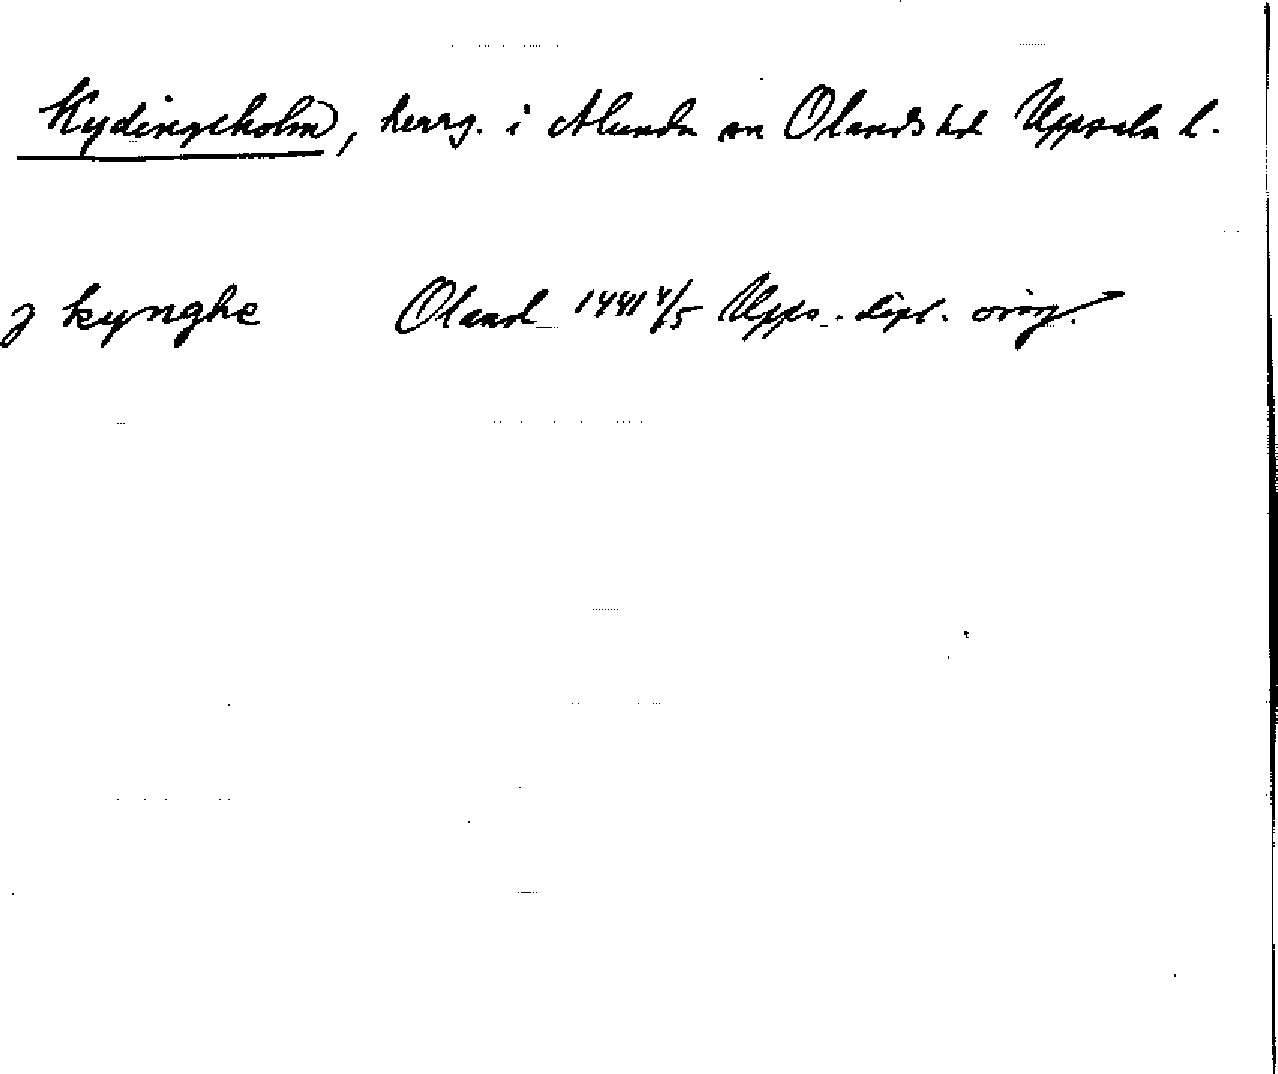 Kydingeholm, herrg. i Alunda sn Olands hd Uppsala l.
j kynghe Oland 1441 4/5 Upps. dipl. orig.